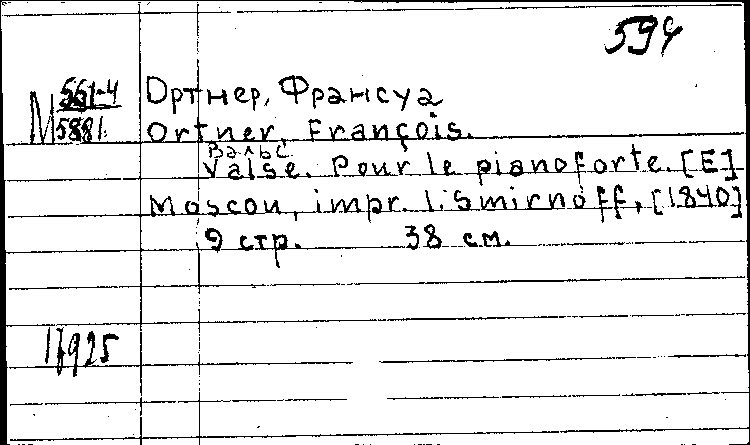 594
M 561-4 Ортнер, Франсуа
5881 Ortner, François.
Вальс
Valse. Pour le pianoforte. [E]
Moscou, impr. I. Smirnoff, [1840]
9 стр. 38 см.
925